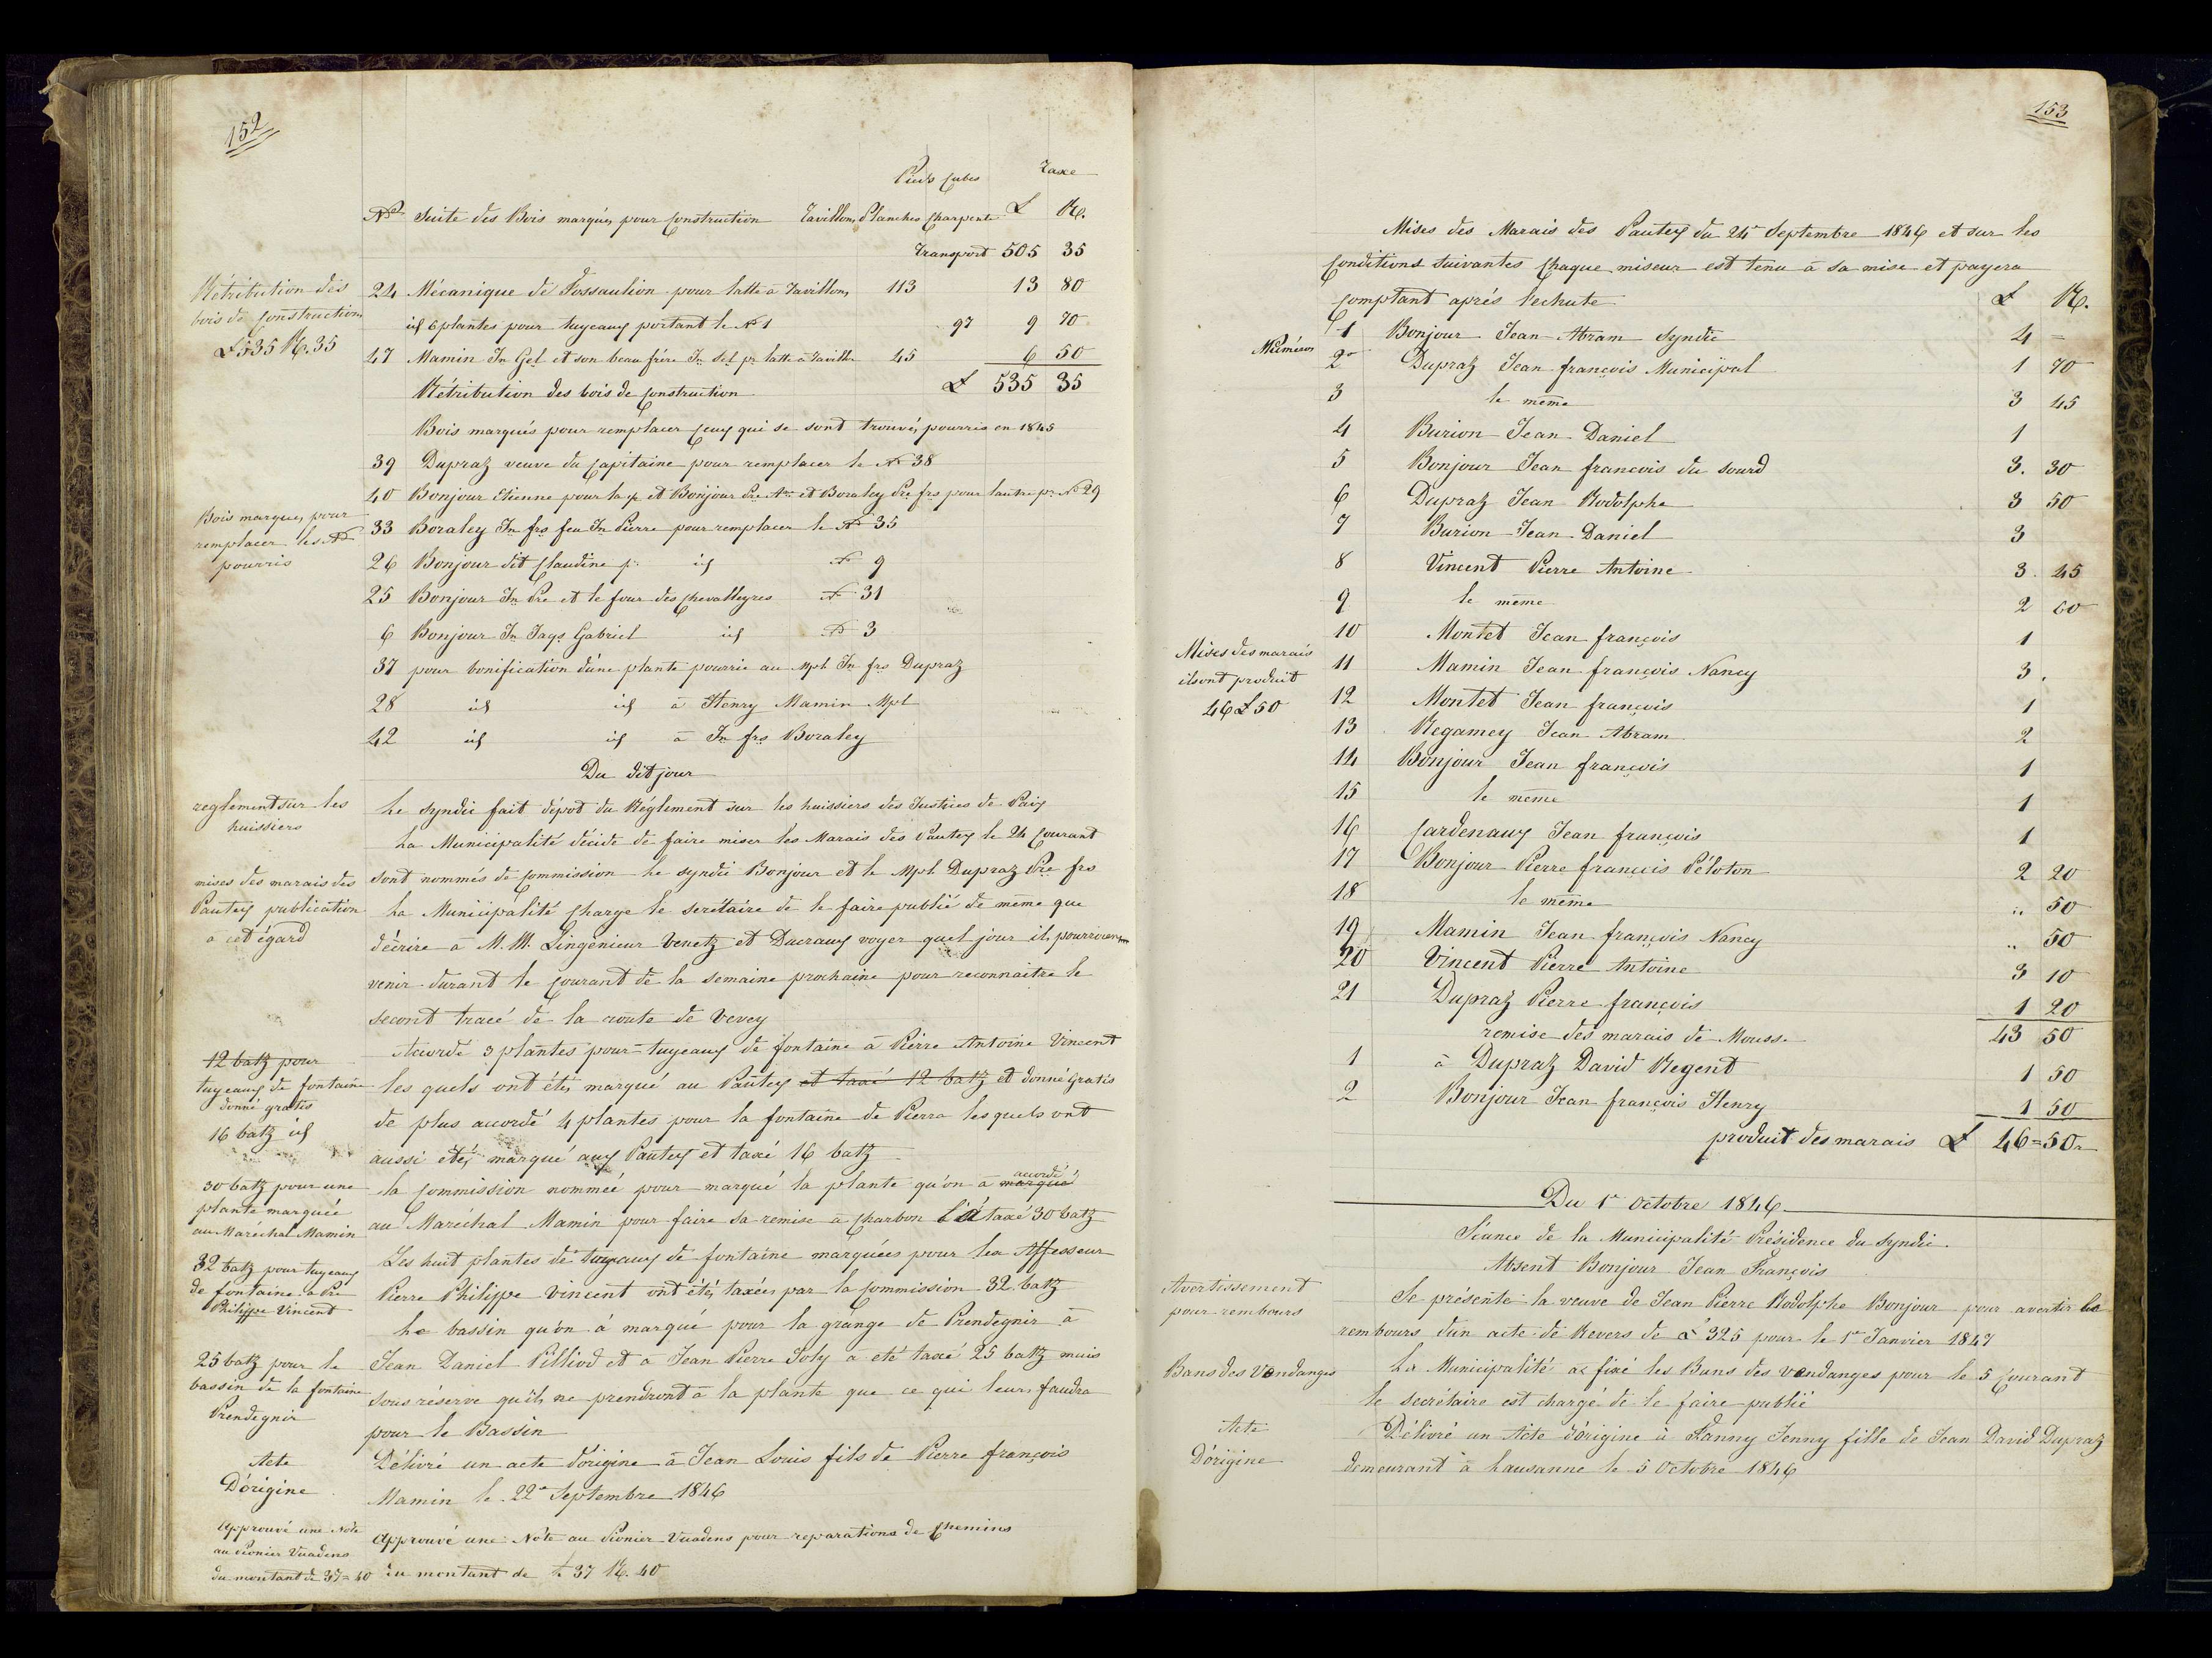 152
Pieds Cubes Taxe
Nos Suite des Bois marqués pour Construction Tavillons Planches Charpente £ R.
Transport 505 35
Rétribution des
bois de Construction
£ 535 R. 35
24 Mécanique de Fossaulion pour latte à Tavillons 113 13 80
id 6 plantes pour tuyeaux portant le No 1 97 9 70
47 Mamin Jn Gel et son beau frère Jn Sel pr latte à Taville 45 6 50
Rétribution des bois de Construction £ 535 35
Bois marqués pour remplacer Ceux qui se sont trouvés pourris en 1845
39 Dupraz veuve du Capitaine pour remplacer le No 38
40 Bonjour Etienne pour la et Bonjour Pre Ane et Boraley Pre frs pour lautre pr No 29
Bois marqués pour
remplacer les Nos
pourris
33 Boraley Jn frs feu Jn Pierre pour remplacer le No 35
26 Bonjour dit Claudine pr id No 9
25 Bonjour Jn Pre et le four des Chevalleyres No 31
6 Bonjour Jn Jaqs Gabriel id No 3
37 pour bonification dúne plante pourrie au Mpl Jn frs Dupraz
28 id id à Henry Mamin Mpl
42 id id à Jn frs Boraley
Du dit jour
reglement sur les
huissiers
Le Syndic fait dépot du Réglement sur les huissiers des Justices de Paix
La Municipalité décide de faire miser les Marais des Pauteys le 24 Courant
mises des marais des
Pauteys publication
à cet égard
sont nommés de Commission le syndic Bonjour et le Mpl Dupraz Pre frs
La Municipalité Charge le serétaire de le faire publié de même que
décrire à M. M. Lingénieur Venetz et Ducraux voyer quel jour ils pourroient
venir durant le Courant de la semaine prochaine pour reconnaitre le
second tracé de la route de Vevey
Accordé 3 plantes pour tuyeaux de fontaine à Pierre Antoine Vincent
12 batz pour
tuyeaux de fontaine
donné gratis
16 batz id
les quels ont étés marqué au Pautex et taxé 12 batz et donné Gratis
de plus accordé 4 plantes pour la fontaine de Pierra les quels ont
aussi étés marqué aux Pauteys et taxé 16 batz
30 batz pour une
plante marquée
au Maréchal Mamin
la Commission nommée pour marqué la plante qu'on a marqué accordé
au Maréchal Mamin pour faire sa remise à Charbon l'a taxé 30 batz
32 batz pour tuyeaux
de fontaine à Pre
Philippe Vincent
Les huit plantes de tuyeaux de fontaine marquées pour lea Assesseur
Pierre Philippe Vincent ont étés taxées par la Commission 32 batz
Le bassin qu'on à marqué pour la grange de Prendegnir à
25 batz pour le
bassin de la fontaine
Prendegnir
Jean Daniel Pilliod et à Jean Pierre Joly à eté taxé 25 batz mais
sous réserve qu'ils ne prendront à la plante que ce qui leurs faudra
pour le Bassin
Acte
D'órigine
Délivré un acte dórigine à Jean Louis fils de Pierre françois
Mamin le 22e Septembre 1846
Approuvé une Note
au Pionier Vuadens
du montant de 37=40
Approuvé une Note au Pionier Vuadens pour reparations de Chemins
du montant de £ 37 R. 40
153
Mises des Marais des Pauteys du 24e Septembre 1846 et sur les
Conditions suivantes Chaque miseur est tenu à sa mise et payera
Comptant après lechute £ R.
Numéros
1 Bonjour Jean Abram Syndic 4 =
2 Dupraz Jean françois Municipal 1 70
3 le même 3 45
4 Burion Jean Daniel 1
5 Bonjour Jean francois du sourd 3. 30
6 Dupraz Jean Rodolphe 3 50
7 Burion Jean Daniel 3
8 Vincent Pierre Antoine 3. 45
9 le même 2 60
10 Montet Jean françois 1
Mises des marais
ils ont produit
46 £ 50
11 Mamin Jean françois Nancy 3.
12 Montet Jean françois 1
13 Regamey Jean Abram 2
14 Bonjour Jean françois 1
15 le même 1
16 Cardenaux Jean françois 1
17 Bonjour Pierre françois Péloton 2 20
18 le même .. 50
19 Mamin Jean françois Nancy .. 50
20 Vincent Pierre Antoine 3 10
21 Dupraz Pierre françois 1 20
remise des marais de Mousse 43 50
1 à Dupraz David Regent 1 50
2 Bonjour Jean françois Henry 1 50
produit des marais £ 46=50
Du 1r Octobre 1846
Séance de la Municipalité Présidence du Syndic.
Absent Bonjour Jean François
Avertissement
pour rembours
Se présente la veuve de Jean Pierre Rodolphe Bonjour pour avertir le
rembours dun acte de Revers de £ 325 pour le 1er Janvier 1847
Bans des Vendanges
La Municipalité a fixé les Bans des vendanges pour le 5 Courant
le secrétaire est chargé de le faire publié
Acte
D'órigine
Délivré un Acte dórigine à Fanny Jenny fille de Jean David Dupraz
demeurant à Lausanne le 5 Octobre 1846